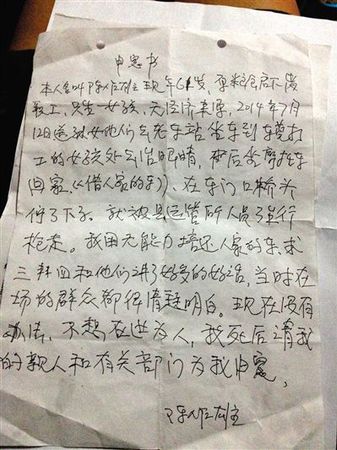 申冤书
本人名叫陈 雄 现年61岁,系粮食局下岗
职工,先生一女孩,无经济来源,2014年7月
12日送 女他们去车站坐车到东莞打
工的女孩处去治眼睛,我后季摩托车
回家(借人家的车),在东门口桥头
停了下子。就被县运管所人员强行
抢走。我因无能力赔还人家的车,求
三拜四和他们讲了好多的好话,当时在
场的群众都很清楚明白。现在没有
办法,不想在世为人,我死后请我
的亲人和有关部门为我申冤,
陈 雄